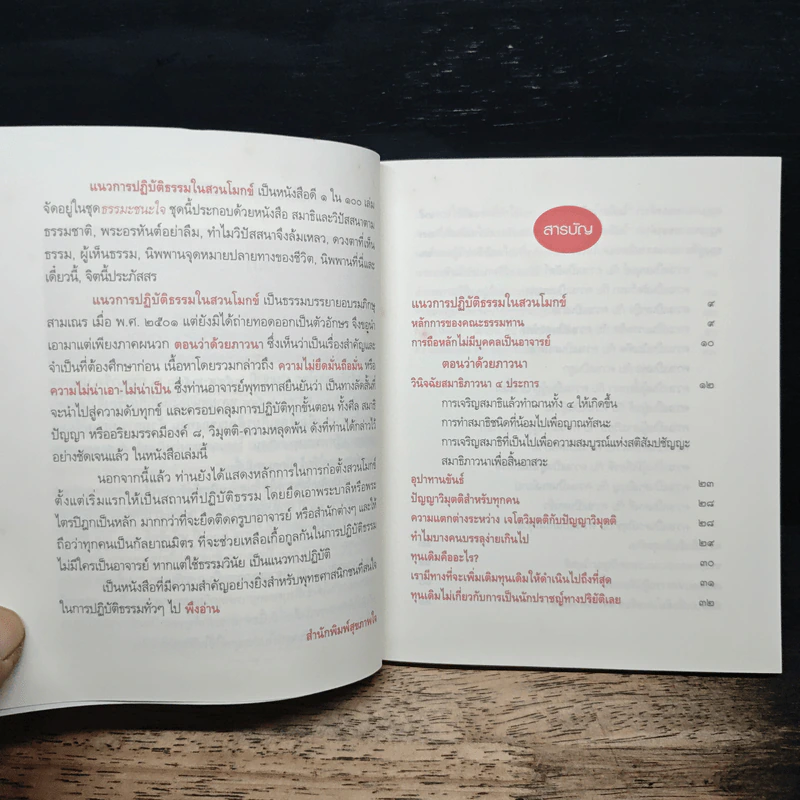 แนวการปฏิบัติธรรมในสวนโมกข์ เป็นหนังสือดี ๑ ใน ๑๐๐ เล่ม
จัดอยู่ในชุดธรรมะชนะใจ ชุดนี้ประกอบด้วยหนังสือ สมาธิและวิปัสสนาตาม
ธรรมชาติ, พระอรหันต์อย่าลืม, ทำไมวิปัสสนาจึงล้มเหลว, ดวงตาที่เห็น
ธรรม, ผู้เห็นธรรม, นิพพานจุดหมายปลายทางของชีวิต, นิพพานที่นี่และ
เดี๋ยวนี้, จิตนี้ประภัสสร
แนวการปฏิบัติธรรมในสวนโมกข์ เป็นธรรมบรรยายอบรมภิกษุ
สามเณร เมื่อ พ.ศ. ๒๕๐๑ แต่ยังมิได้ถ่ายทอดออกเป็นตัวอักษร จึงขอนำ
เอามาแต่เพียงภาคผนวก ตอนว่าด้วยภาวนา ซึ่งเห็นว่าเป็นเรื่องสำคัญและ
จำเป็นที่ต้องศึกษาก่อน เนื้อหาโดยรวมกล่าวถึง ความไม่ยึดมั่นถือมั่น หรือ
ความไม่น่าเอา-ไม่น่าเป็น ซึ่งท่านอาจารย์พุทธทาสยืนยันว่า เป็นทางลัดสั้นที่
จะนำไปสู่ความดับทุกข์ และครอบคลุมการปฏิบัติทุกขั้นตอน ทั้งศีล สมาธิ
ปัญญา หรืออริยมรรคมีองค์ ๘, วิมุตติ-ความหลุดพ้น ดังที่ท่านได้กล่าวไว้
อย่างชัดเจนแล้ว ในหนังสือเล่มนี้
นอกจากนี้แล้ว ท่านยังได้แสดงหลักการในการก่อตั้งสวนโมกข์
ตั้งแต่เริ่มแรกให้เป็นสถานที่ปฏิบัติธรรม โดยยึดเอาพระบาลีหรือพระ
ไตรปิฎกเป็นหลัก มากกว่าที่จะยึดติดครูบาอาจารย์ หรือสำนักต่างๆ และให้
ถือว่าทุกคนเป็นกัลยาณมิตร ที่จะช่วยเหลือเกื้อกูลกันในการปฏิบัติธรรม
ไม่มีใครเป็นอาจารย์ หากแต่ใช้ธรรมวินัย เป็นแนวทางปฏิบัติ
เป็นหนังสือที่มีความสำคัญอย่างยิ่งสำหรับพุทธศาสนิกชนที่สนใจ
ในการปฏิบัติธรรมทั่วๆ ไป พึงอ่าน
สำนักพิมพ์สุขภาพใจ
สารบัญ
แนวการปฏิบัติธรรมในสวนโมกข์ ๙
หลักการของคณะธรรมทาน ๙
การถือหลักไม่มีบุคคลเป็นอาจารย์ ๑๐
ตอนว่าด้วยภาวนา
วินิจฉัยสมาธิภาวนา ๔ ประการ ๑๒
การเจริญสมาธิแล้วทำฌานทั้ง ๔ ให้เกิดขึ้น
การทำสมาธิชนิดที่น้อมไปเพื่อญาณทัสนะ
การเจริญสมาธิที่เป็นไปเพื่อความสมบูรณ์แห่งสติสัมปชัญญะ
สมาธิภาวนาเพื่อสิ้นอาสวะ
อุปาทานขันธ์ ๒๓
ปัญญาวิมุตติสำหรับทุกคน ๒๘
ความแตกต่างระหว่าง เจโตวิมุตติกับปัญญาวิมุตติ ๒๘
ทำไมบางคนบรรลุง่ายเกินไป ๒๙
ทุนเดิมคืออะไร? ๓๐
เรามีทางที่จะเพิ่มเติมทุนเดิมให้ดำเนินไปถึงที่สุด ๓๑
ทุนเดิมไม่เกี่ยวกับการเป็นนักปราชญ์ทางปริยัติเลย ๓๒